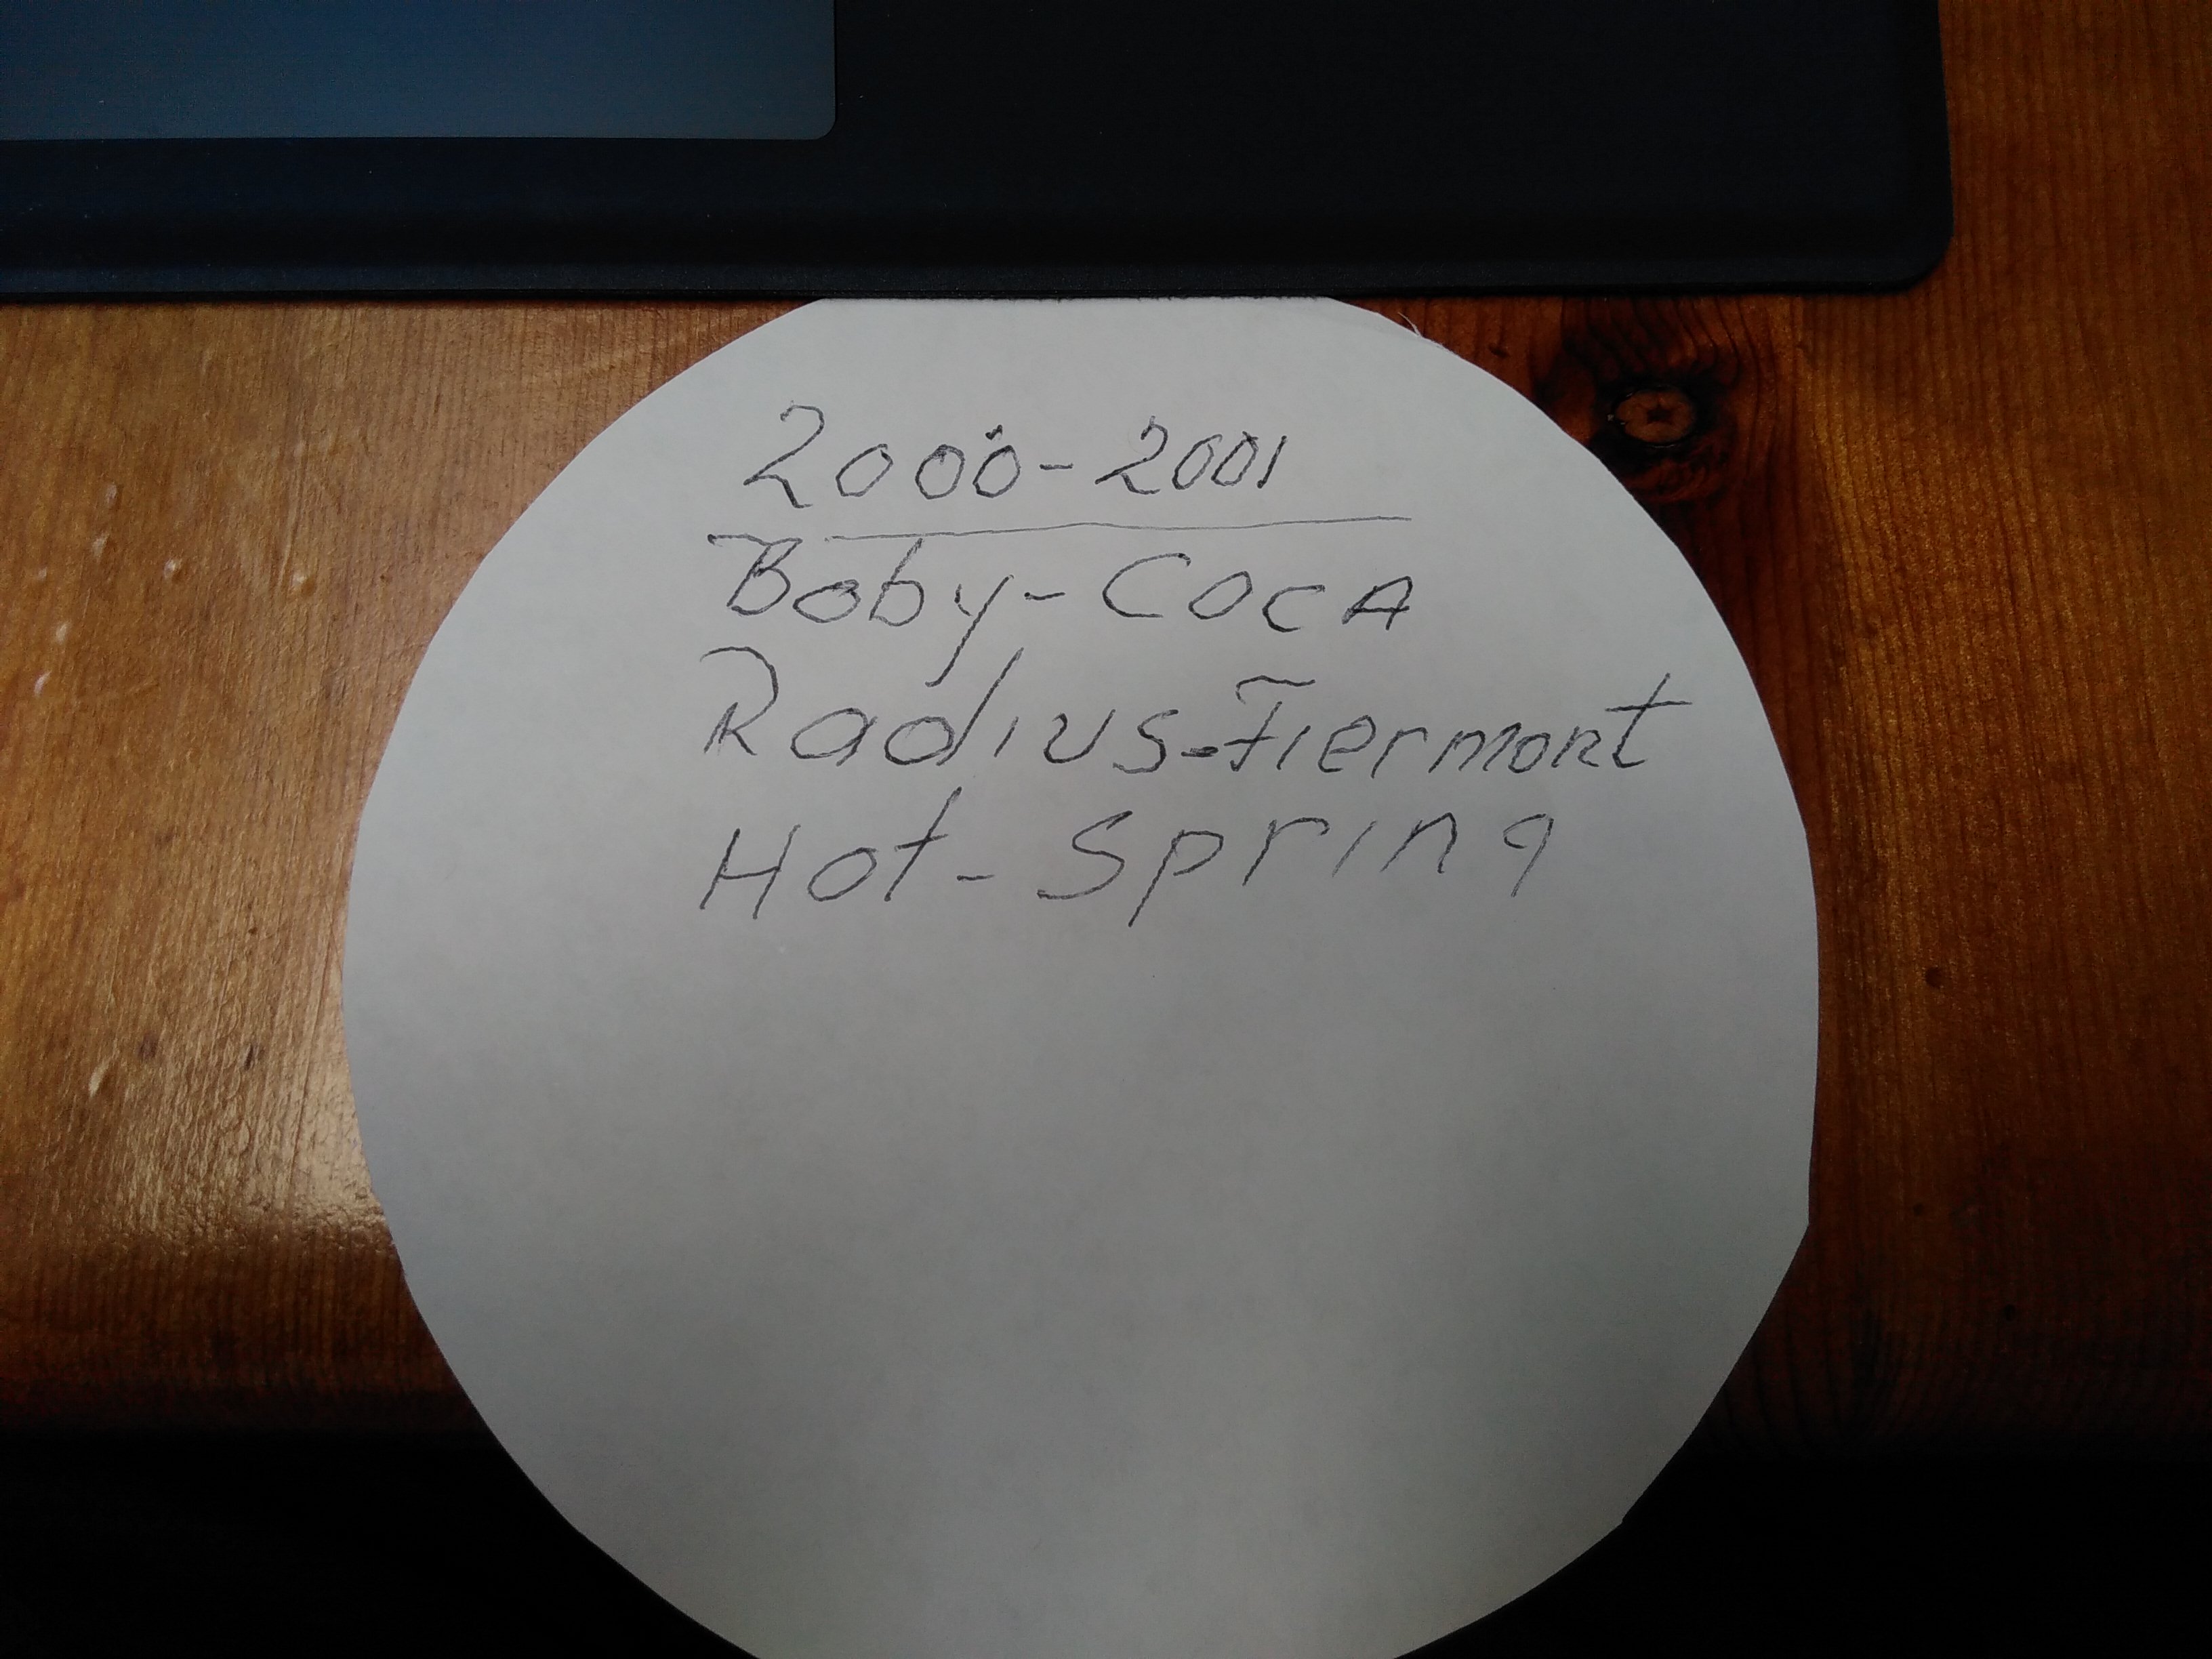 2000-2001
Boby-COCA
Radius-Fiermont
Hot-Spring